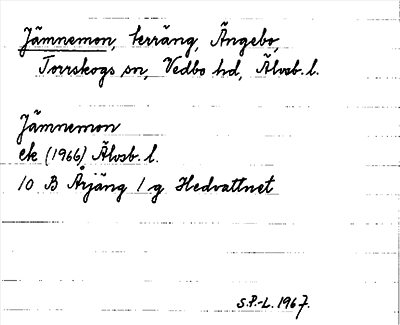 Jämnemon, terräng, Ängebo,
Torrskogs sn, Vedbo hd, Älvsb. l.
Jämnemon
ek (1966) Älvsb. l.
10 B Årjäng 1 g Hedvattnet
S.P.-L. 1967.